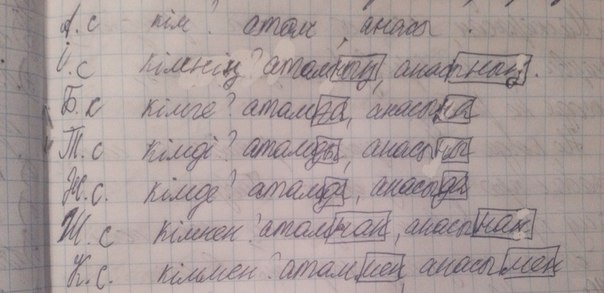 А.с кім? атам, анасы.
І.с кімнің? атамның, анасының.
Б.с кімге? атамға, анасына
Т.с кімді? атамды, анасын
Ж.с. кімде? атамда, анасында
Ш.с кімнен? атамнан, анасынан
К.с. кіммен? атаммен, анасымен